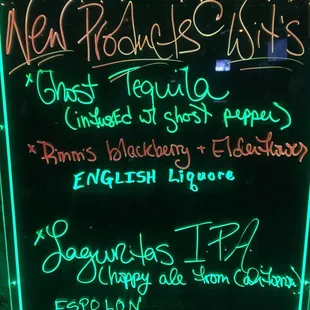 New Products @ Wit's
* Ghost Tequila
(infused w/ ghost pepper)
* Pimm's blackberry + Elderflower
ENGLISH Liquore
* Lagunitas IPA
(hoppy ale from California)
ESPOLON